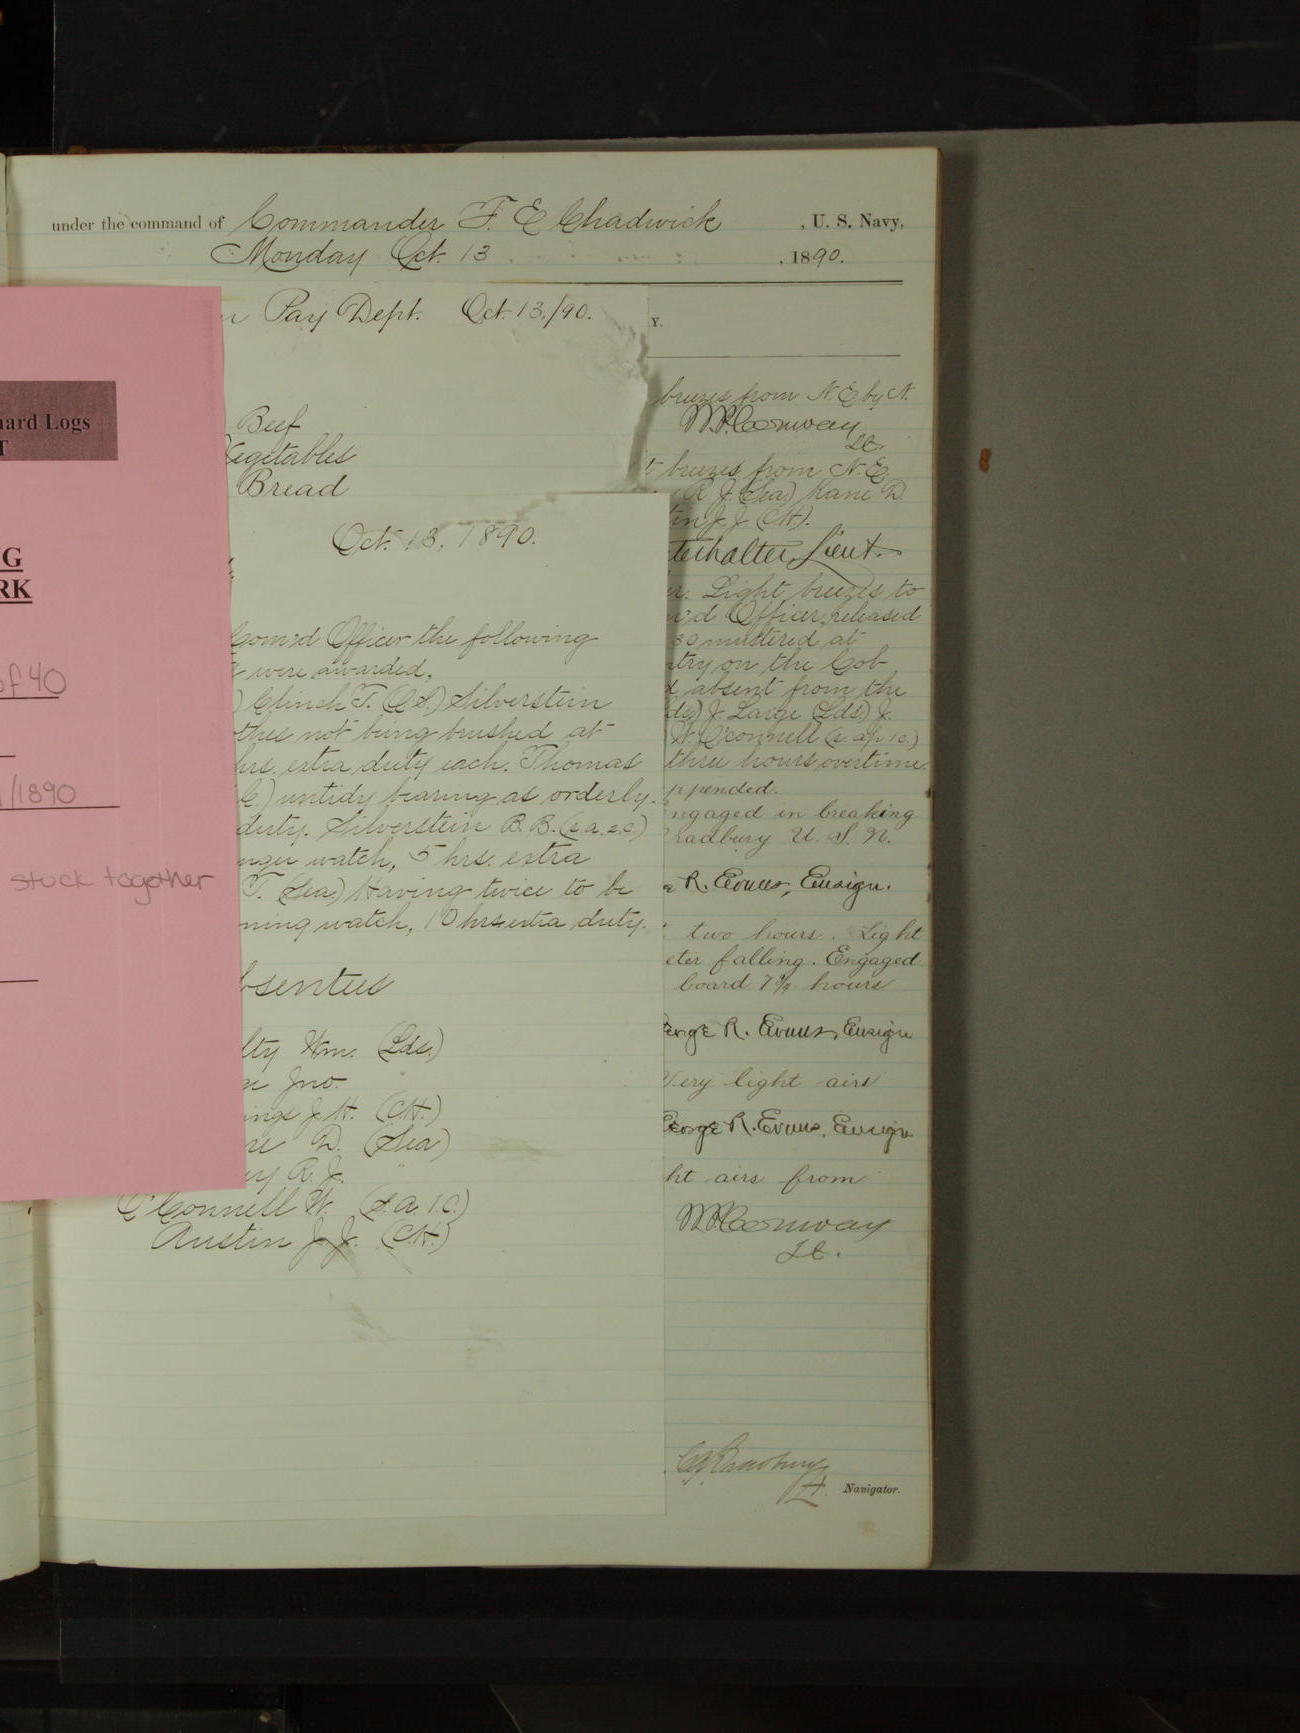 under the command of Commander F. E. Chadwick , U. S. Navy,
Monday Oct. 13 , 1890.
Pay Dept. Oct. 13,/90.
Beef
Vegetables
Bread
Oct. 13, 1890.
Com'd Officer the following
were awarded.
) Clinch T. Silverstein
not being brushed at
hrs. extra duty each. Thomas
untidy bearing as orderly.
duty. Silverstein B. B. (s.a.2.c.)
watch, 5 hrs. extra
T. (Sea.) Having twice to be
watch, 10 hrs. extra duty.
Wm. (Lds.)
Jno. "
J. H. (C.H.)
D. (Sea)
R. J. "
O'Connell W. (s.a.1.c.)
Austin J. J. (C.H.)
Y.
breezes from N. E. by N.
W. P. Conway
Lt.
breezes from N. E.
R. J. (Sea) Kane D.
J. J. (C.H.)
terhalter, Lieut.
Light breezes to
Officer, released
30 mustered at
on the Gob
absent from the
J. Large (Lds) J.
W. O'Connell (s. a/p 1 c.)
three hours overtime.
ppended.
ngaged in breaking
radbury U. S. N.
R. Evans, Ensign.
two hours. Light
eter falling. Engaged
board 7 3/4 hours
George R. Evans, Ensign
Very light airs
George R. Evans, Ensign
ht airs from
W. P. Conway
Lt.
C. A. Bradbury
Lt. Navigator.
uard Logs
T
G
RK
of 40
/1890
stuck together